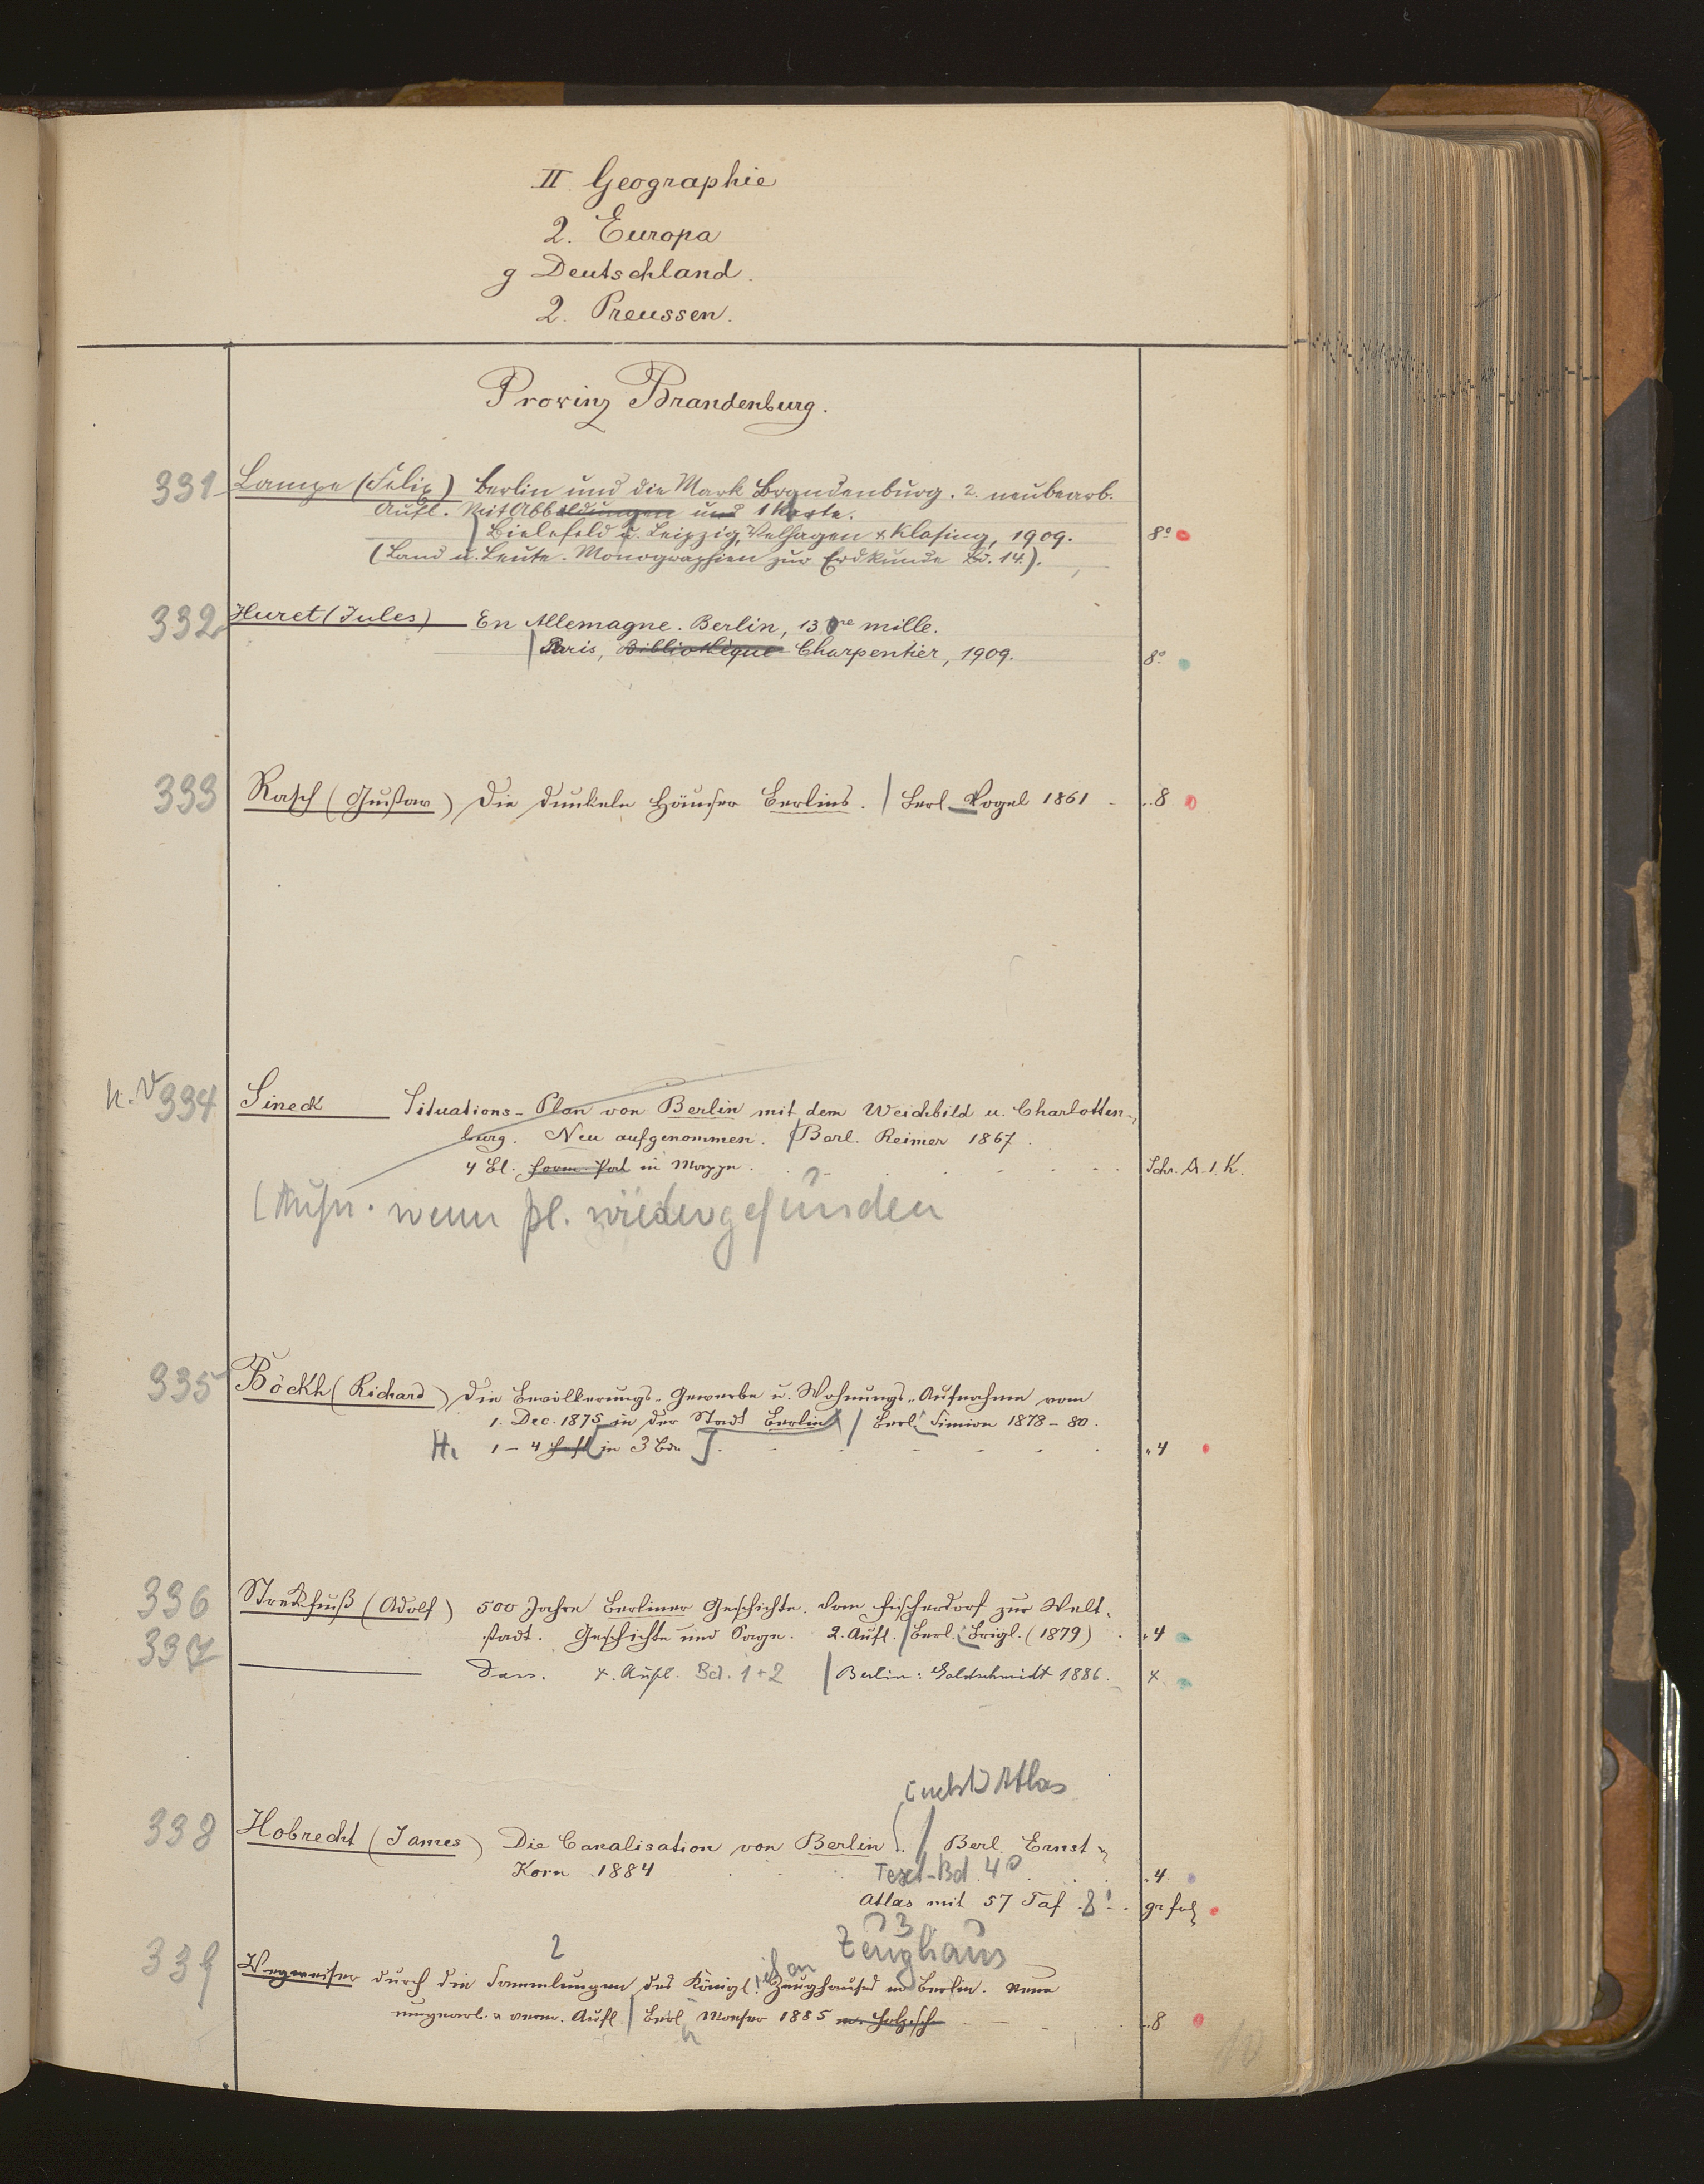 II Geographie
2. Europa
g Deutschland.
2. Preussen.
Provinz Brandenburg.
331 Lampe (Felix) Berlin und die Mark Brandenburg. 2. neubearb.
Aufl. Mit Abbildungen und 1 Karte.
Bielefeld u. Leipzig, Velhagen & Klasing, 1909. 8°
(Land u. Leute. Monographien zur Erdkunde Bd. 14.).
332 Huret (Jules) En Allemagne. Berlin, 13 me mille.
Paris, Bibliothèque Charpentier, 1909. 8°
333 Rasch (Gustav) Die dunkeln Häuser Berlins. | Berl. Vogel 1861 8
n. V 334 Sineck Situations-Plan von Berlin mit dem Weichbild u. Charlotten-
burg. Neu aufgenommen. | Berl. Reimer 1867.
4 Bl. in Mappe. Schr. A. 1. K.
wenn pl. wiedergefunden
335 Böckh (Richard) Die Bevölkerungs-, Gewerbe u. Wohnungs-Aufnahme vom
1. Dec. 1875 in der Stadt Berlin | Berl. Simion 1878-80.
H. 1-4 Heft in 3 Bdn 4
336 Streckfuß (Adolf) 500 Jahre Berliner Geschichte. Vom Fischerdorf zur Welt-
stadt. Geschichte und Sage. 2. Aufl. | Berl. Brigl. (1879) 4
337 Dass. 4. Aufl. Bd. 1+2 | Berlin: Goldschmidt 1886. 4
Atlas
338 Hobrecht (James) Die Canalisation von Berlin. | Berl. Ernst &
Korn 1884 Text-Bd. 4° 4
Atlas mit 57 Taf. gr fol
2 3 Zeughaus
339 Wegweiser durch die Sammlungen des Königl. Zeughauses in Berlin. Neue
umgearb. & verm. Aufl. | Berl. Moeser 1885 8